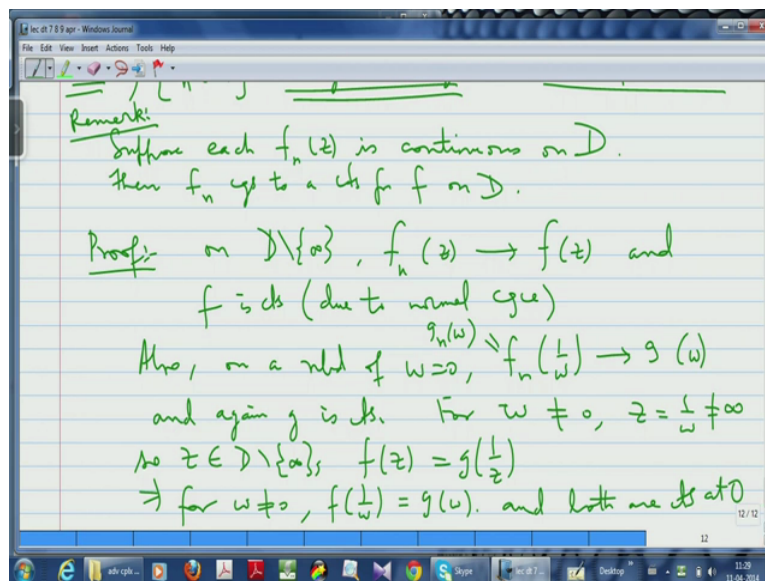 lec dt 7 8 9 apr - Windows Journal
File Edit View Insert Actions Tools Help
Remark:
Suppose each fₙ(z) is continuous on D.
Then fₙ cgs to a cts fn f on D.
Proof:- on D\{∞}, fₙ(z) → f(z) and
f is cts (due to normal cgce)
gₙ(w)
Also, on a nbd of w=0, fₙ(1/w) → g(w)
and again g is cts. For w ≠ 0, z = 1/w ≠ ∞
so z ∈ D\{∞}, f(z) = g(1/z)
⇒ for w≠0, f(1/w) = g(w). and both are cts at 0
12/12
12
adv cplx ...
Skype
lec dt 7...
Desktop
11:29
11-04-2014